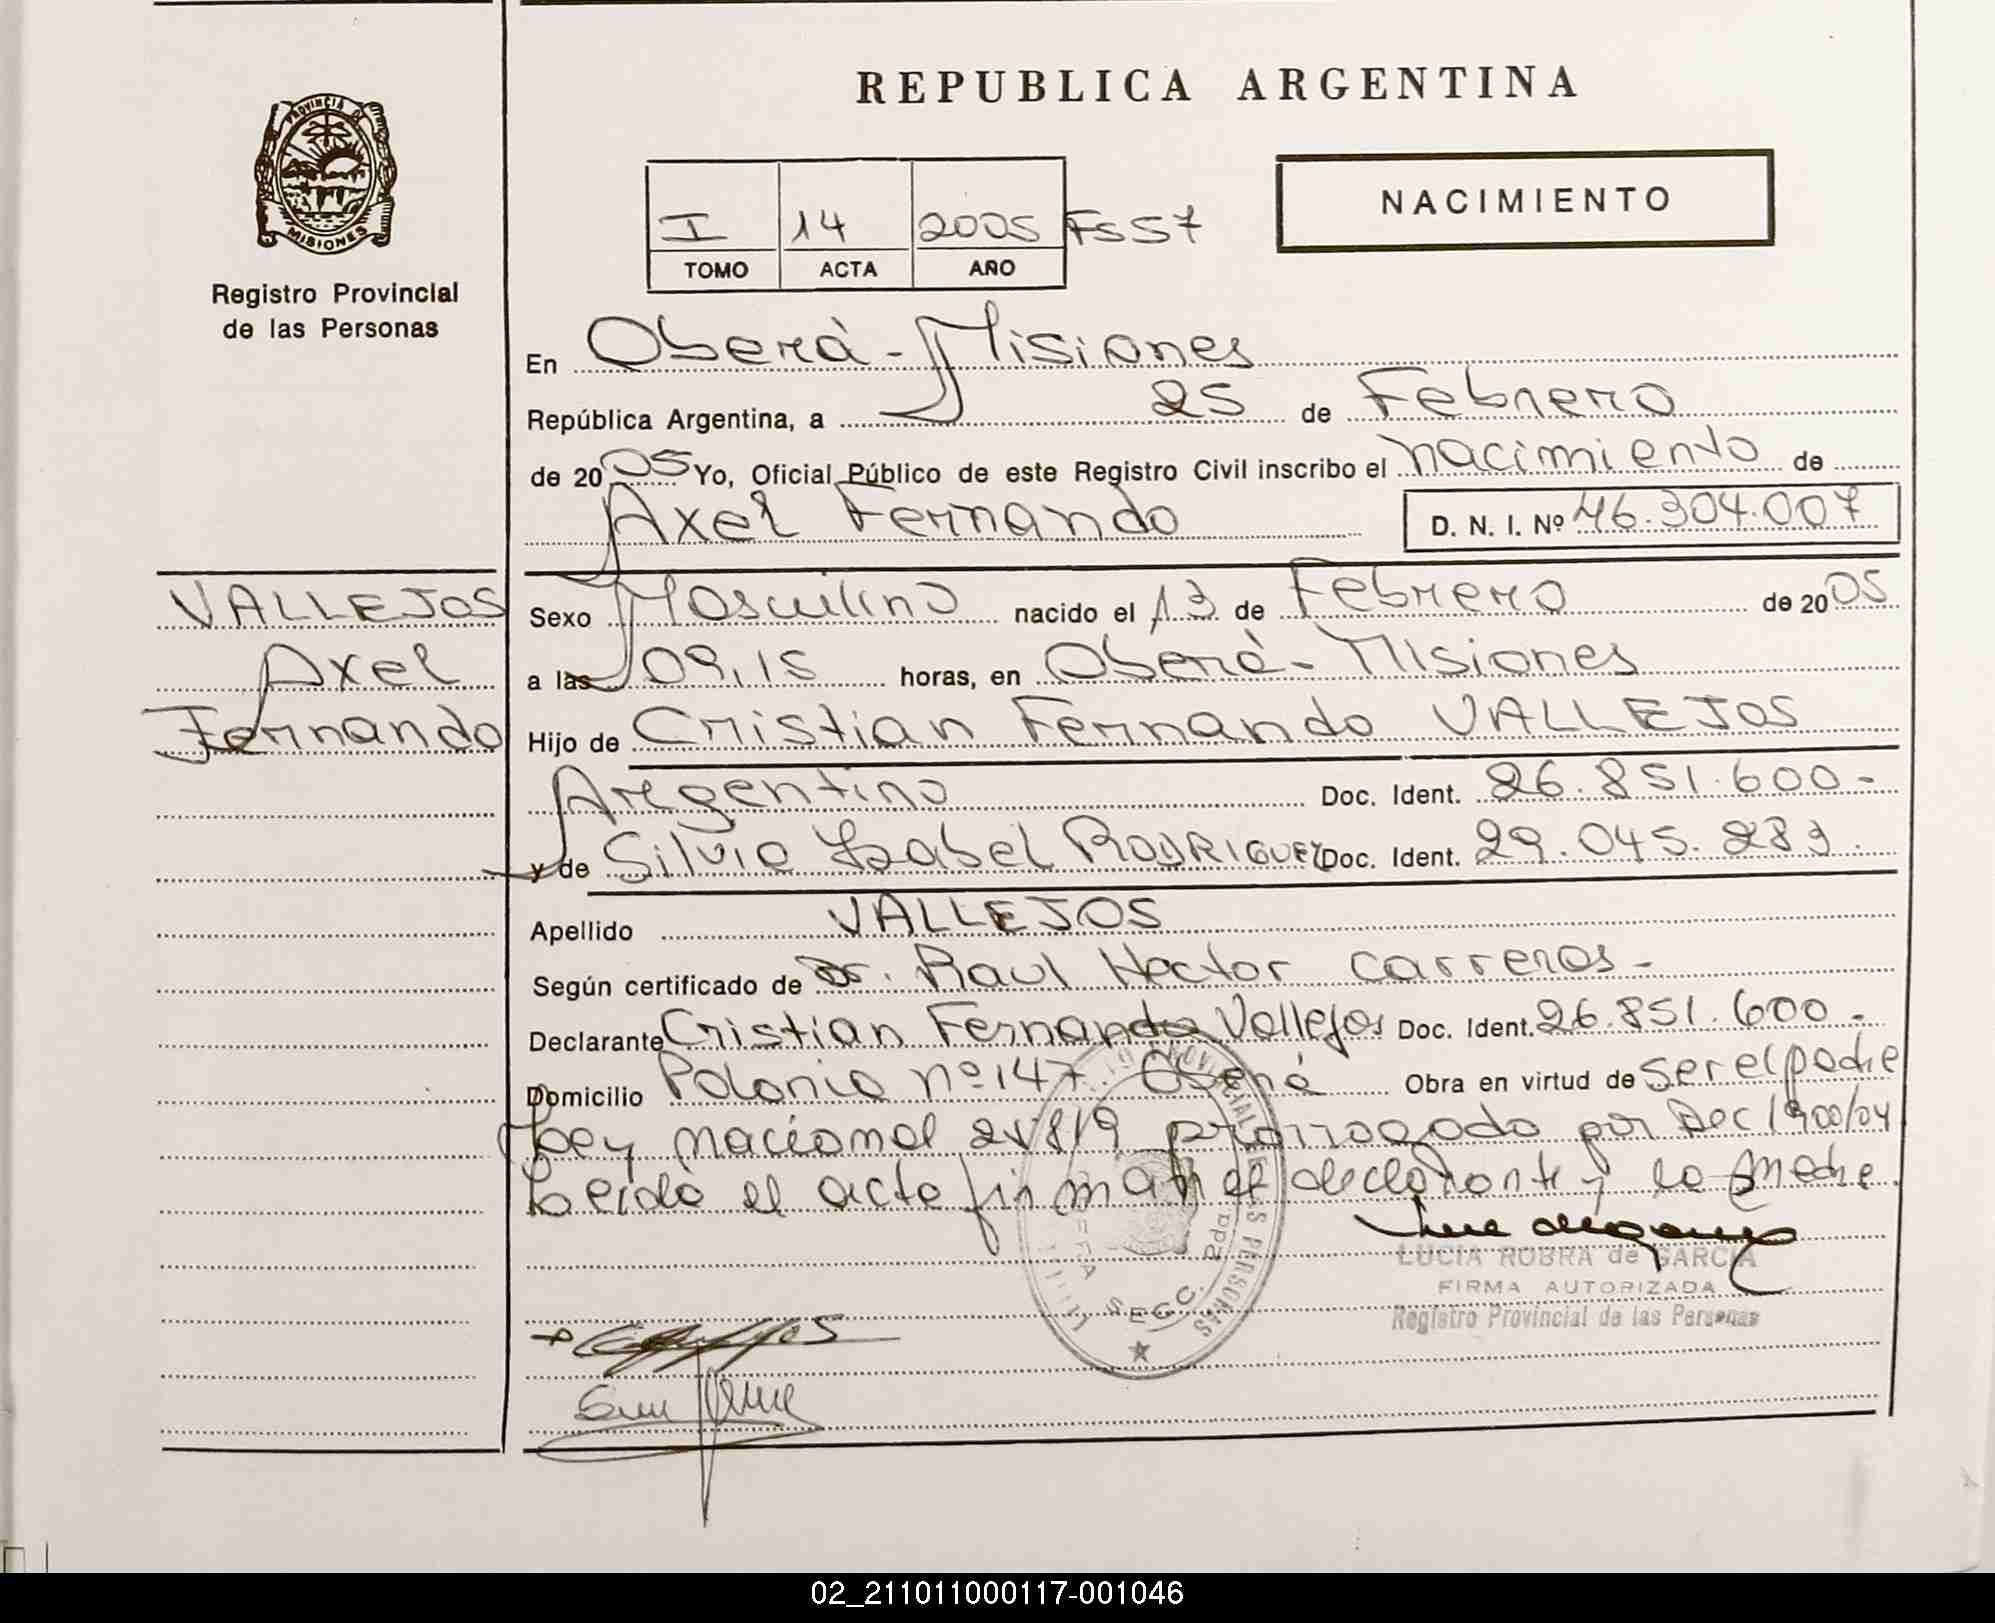 REPUBLICA ARGENTINA
PROVINCIA DE
MISIONES
Registro Provincial
de las Personas
NACIMIENTO
I 14 2005 Fs 57
TOMO ACTA AÑO
En Oberá - Misiones
República Argentina, a 25 de Febrero
de 2005 Yo, Oficial Público de este Registro Civil inscribo el nacimiento de
Axel Fernando D. N. I. Nº 46.304.007
VALLEJOS
Axel
Fernando
Sexo Masculino nacido el 13 de Febrero de 2005
a las 09,15 horas, en Oberá - Misiones
Hijo de Cristian Fernando VALLEJOS
Argentino Doc. Ident. 26.851.600-
y de Silvia Isabel RODRIGUEZ Doc. Ident. 29.045.289.
Apellido VALLEJOS
Según certificado de Dr. Raul Hector Carreras -
Declarante Cristian Fernando Vallejos Doc. Ident. 26.851.600-
Domicilio Polonia nº 147. Oberá Obra en virtud de ser el padre
Ley nacional 24819 prorrogado por Dec 1900/04
Leida el acta firman el declarante y la madre.
LUCIA ROBRA de GARCIA
FIRMA AUTORIZADA
Registro Provincial de las Personas
SECC. 2da
02_211011000117-001046